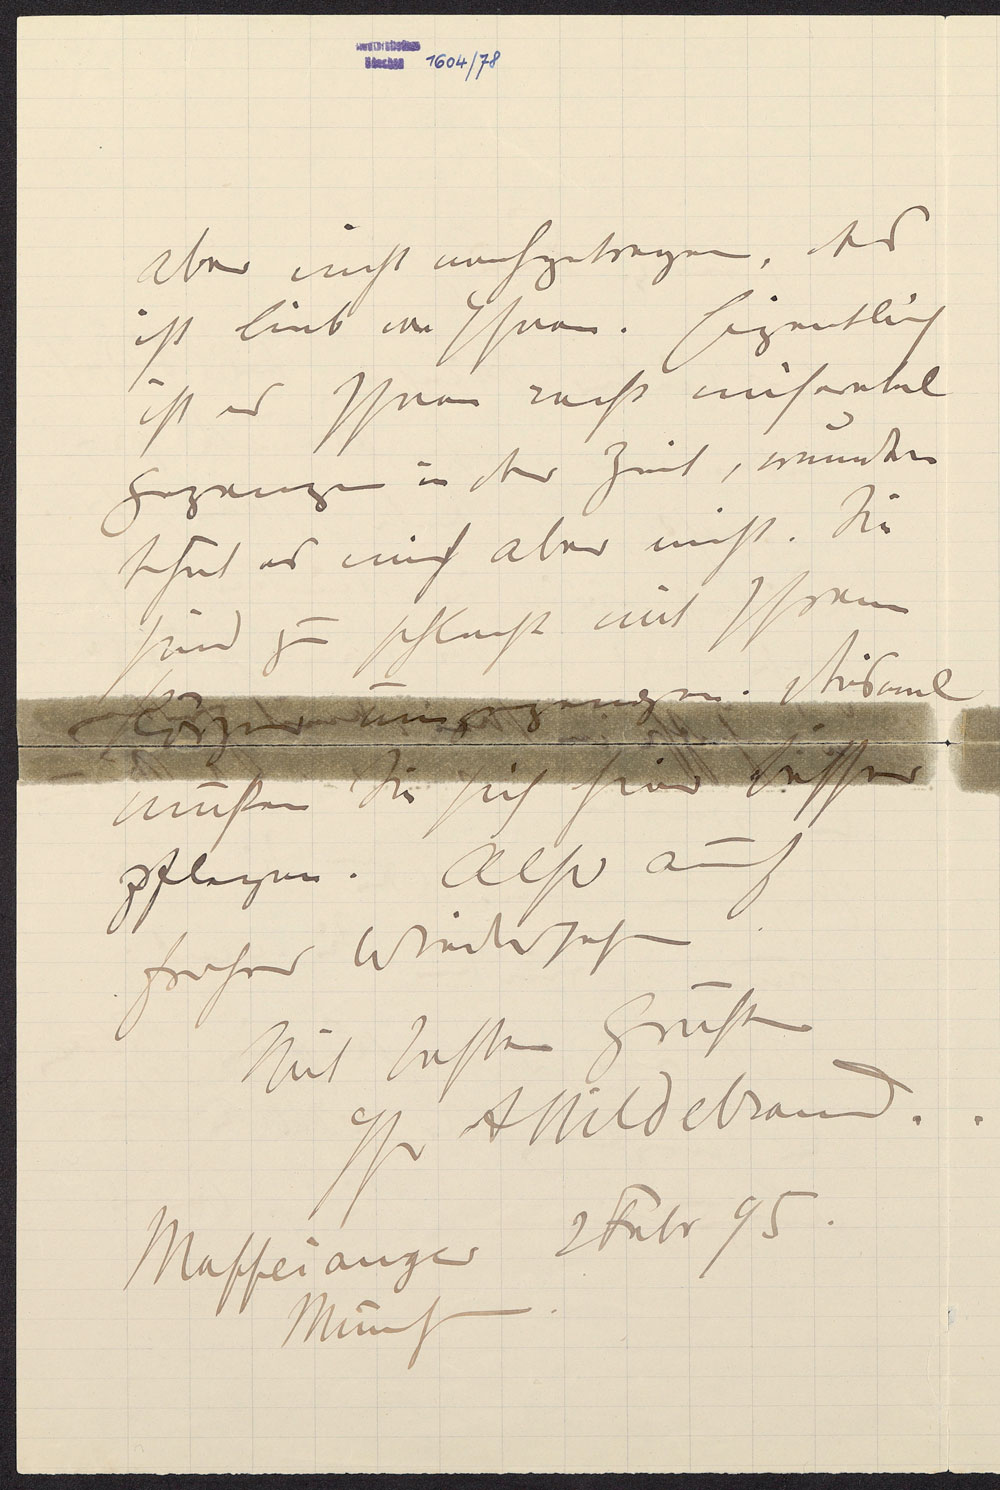 1604/78
aber nicht nachgetragen, das
ist lieb von Ihnen. Eigentlich
ist es Ihnen recht miserabel
gegangen in der Zeit, wundern
thut es mich aber nicht. Sie
sind zu schlecht mit Ihrem
Körper umgegangen. Diesmal
müßen Sie sich hier besser
pflegen. Also auf
frohes Wiedersehen
Mit besten Grüßen
Ihr AHildebrand.
Maffeianger 2 Febr 95.
München